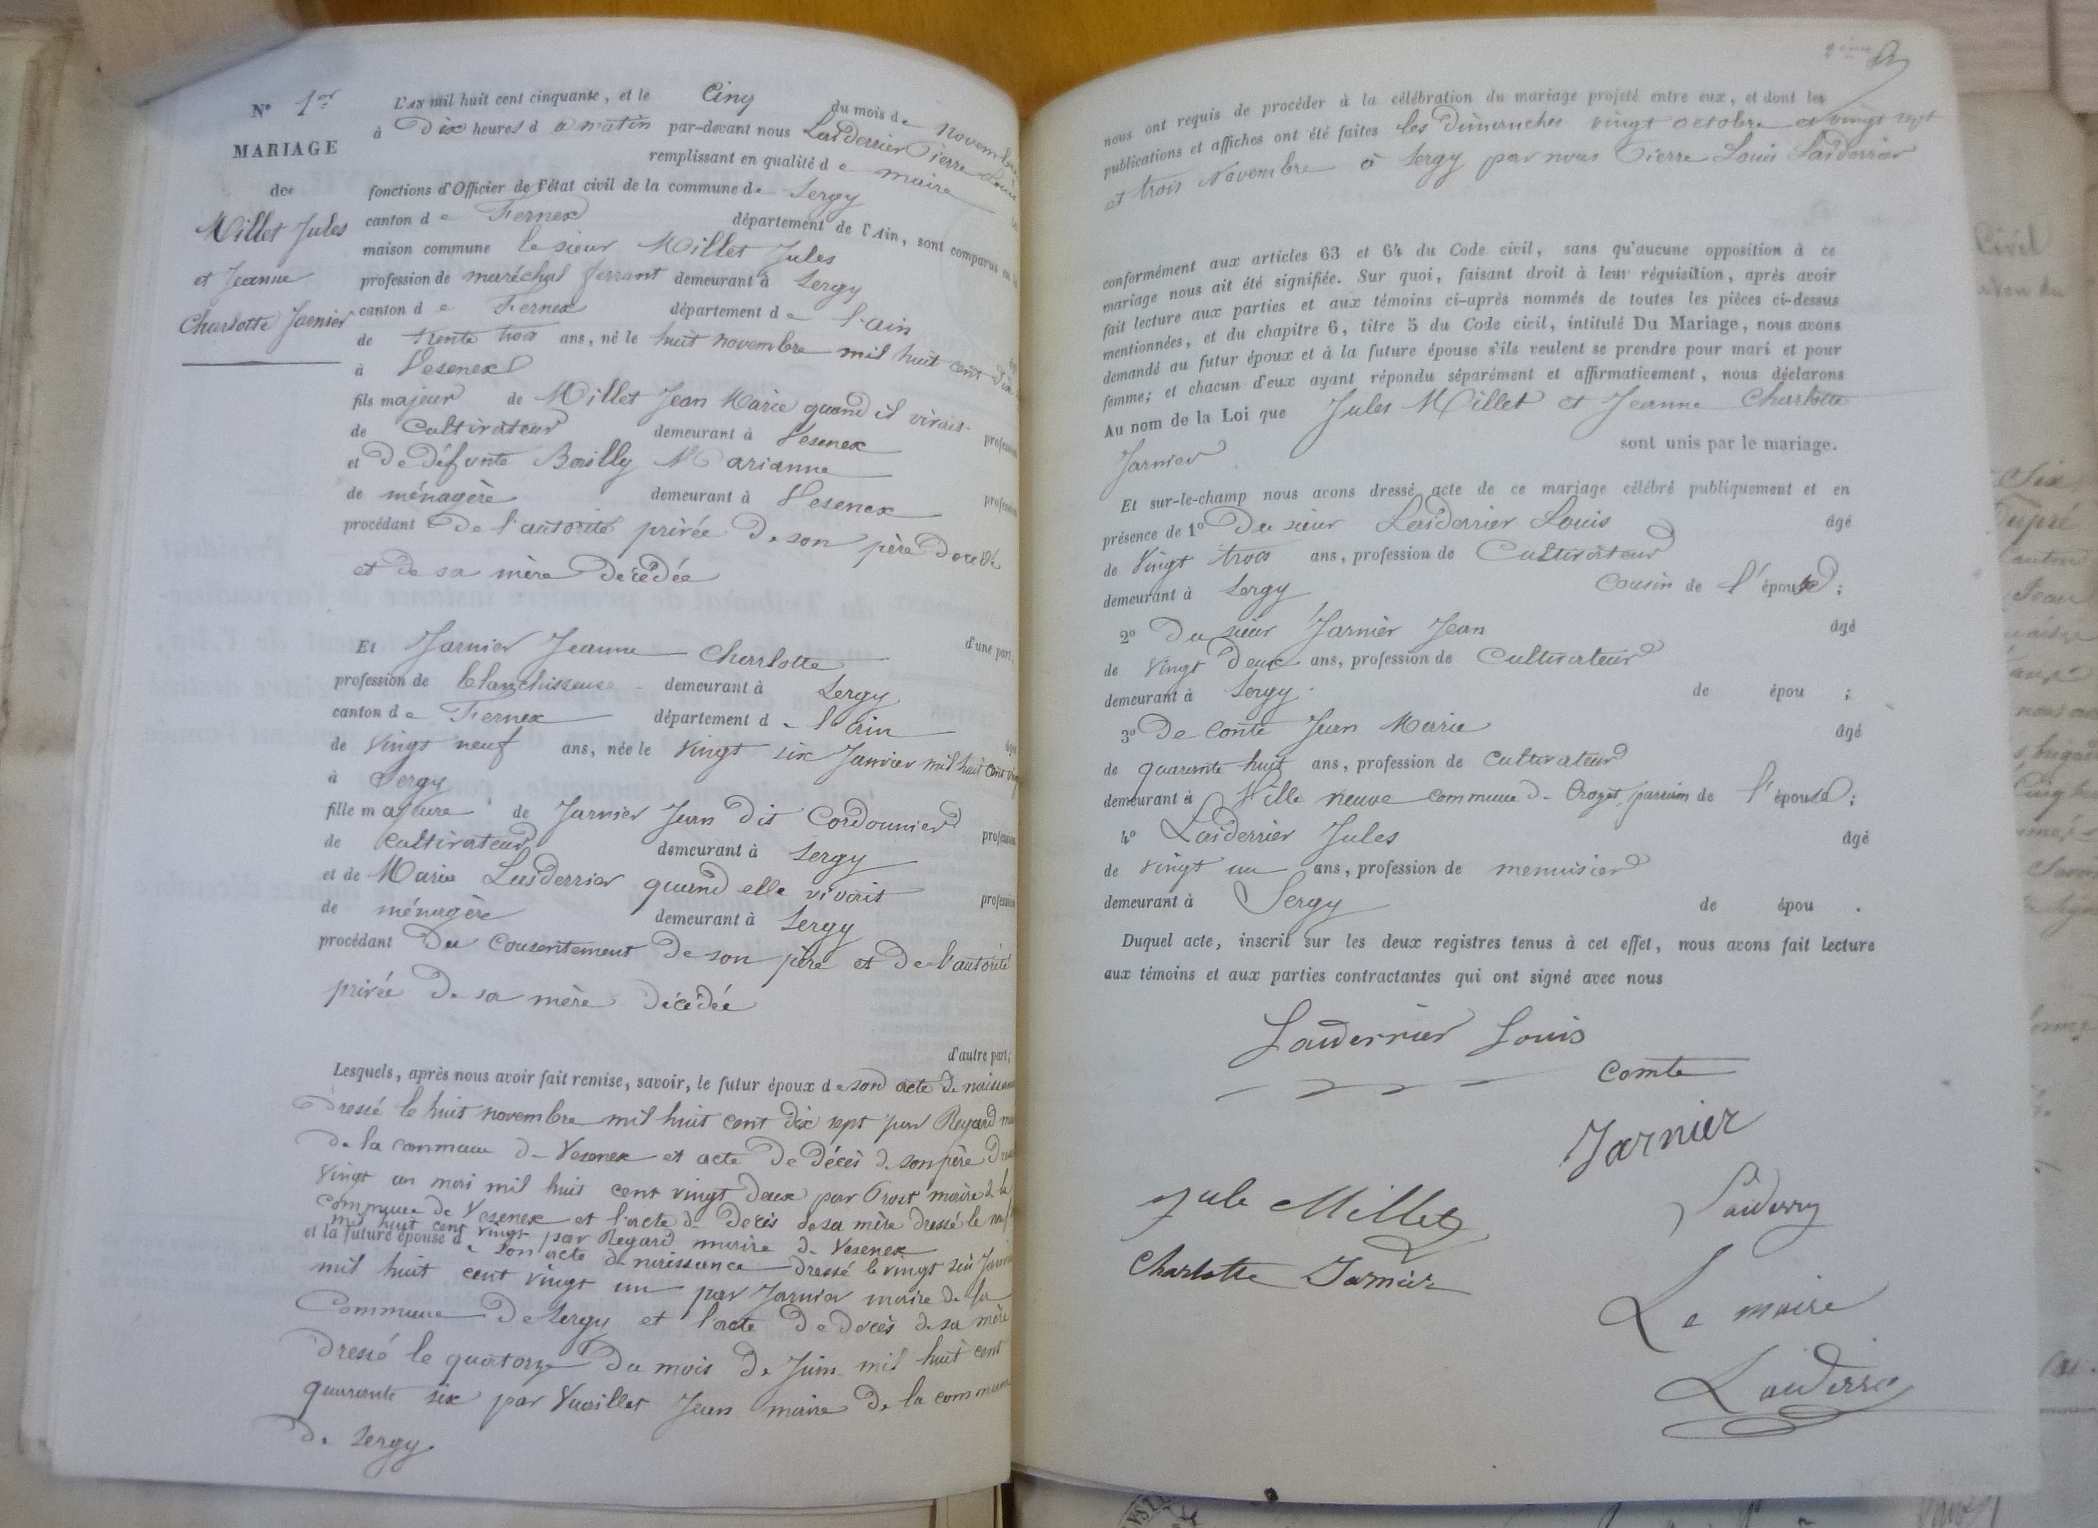 N° 1er
MARIAGE
de
Millet Jules
et Jeanne
Charlotte Jarnier
L'an mil huit cent cinquante, et le Cinq du mois de novembre
à Dix heures d u matin par-devant nous Laiderrier Pierre Louis
remplissant en qualité d e maire les
fonctions d'Officier de l'état civil de la commune de Sergy
canton d e Fernex département de l'Ain, sont comparus en la
maison commune le sieur Millet Jules
profession de maréchal ferrant demeurant à Sergy
canton d e Fernex département d e l'ain
de trente trois ans, né le huit novembre mil huit cent dix
à Vesenex
fils majeur de Millet Jean Marie quand il vivait profession
de Cultivateur demeurant à Vesenex
et De défunte Marianne
de ménagère demeurant à Vesenex profession
procédant De l'autorité privée De son père Décédé
et de sa mère Décédée
d'une part,
Et Jarnier Jeanne Charlotte
profession de blanchisseuse demeurant à Sergy
canton d e Fernex département d e l'ain
de Vingt neuf ans, née le Vingt six Janvier mil huit cent vingt
à Sergy
fille majeure de Jarnier Jean dit Cordonnier profession
de Cultivateur demeurant à Sergy
et de Marie Laiderrier quand elle vivait profession
de ménagère demeurant à Sergy
procédant Du Consentement De son père et De l'autorité
privée De sa mère Décédée
d'autre part;
Lesquels, après nous avoir fait remise, savoir, le futur époux d e son acte De naissance
Dressé le huit novembre mil huit cent dix sept par Regard maire
de la commune De Vesenex et acte De Décès De son père Dressé
Vingt un mil huit cent vingt deux par maire De la
Commune De Vesenex et l'acte De Décès De sa mère dressé le
mil huit cent vingt par Regard maire De Vesenex
et la future épouse d e son acte De naissance dressé le vingt six Janvier
mil huit cent vingt un par Jarnier maire De la
Commune De Sergy et l'acte De Décès De sa mère
Dressé le quatorze Du mois De Juin mil huit cent
quarante six par Vuaillet Jean maire De la commune
De Sergy.
2ème
nous ont requis de procéder à la célébration du mariage projeté entre eux, et dont les
publications et affiches ont été faites les Dimanches vingt octobre et vingt sept
et trois Novembre à Sergy par nous Pierre Louis Laiderrier
conformément aux articles 63 et 64 du Code civil, sans qu'aucune opposition à ce
mariage nous ait été signifiée. Sur quoi, faisant droit à leur réquisition, après avoir
fait lecture aux parties et aux témoins ci-après nommés de toutes les pièces ci-dessus
mentionnées, et du chapitre 6, titre 5 du Code civil, intitulé Du Mariage, nous avons
demandé au futur époux et à la future épouse s'ils veulent se prendre pour mari et pour
femme; et chacun d'eux ayant répondu séparément et affirmativement, nous déclarons
Au nom de la Loi que Jules Millet et Jeanne Charlotte
Jarnier sont unis par le mariage.
Et sur-le-champ nous avons dressé acte de ce mariage célébré publiquement et en
présence de 1° Du sieur Laiderrier Louis âgé
de Vingt trois ans, profession de Cultivateur
demeurant à Sergy Cousin de l'épouse;
2° Du sieur Jarnier Jean âgé
de Vingt Deux ans, profession de Cultivateur
demeurant à Sergy. de épou ;
3° De Conte Jean Marie âgé
de quarante huit ans, profession de Cultivateur
demeurant à Ville neuve commune De Crozet, parrain de l'épouse;
4° Laiderrier Jules âgé
de vingt un ans, profession de menuisier
demeurant à Sergy de épou .
Duquel acte, inscrit sur les deux registres tenus à cet effet, nous avons fait lecture
aux témoins et aux parties contractantes qui ont signé avec nous
Laiderrier Louis
Comte
Jarnier
Jule Millet
Charlotte Jarnier
Le maire
Laiderrier